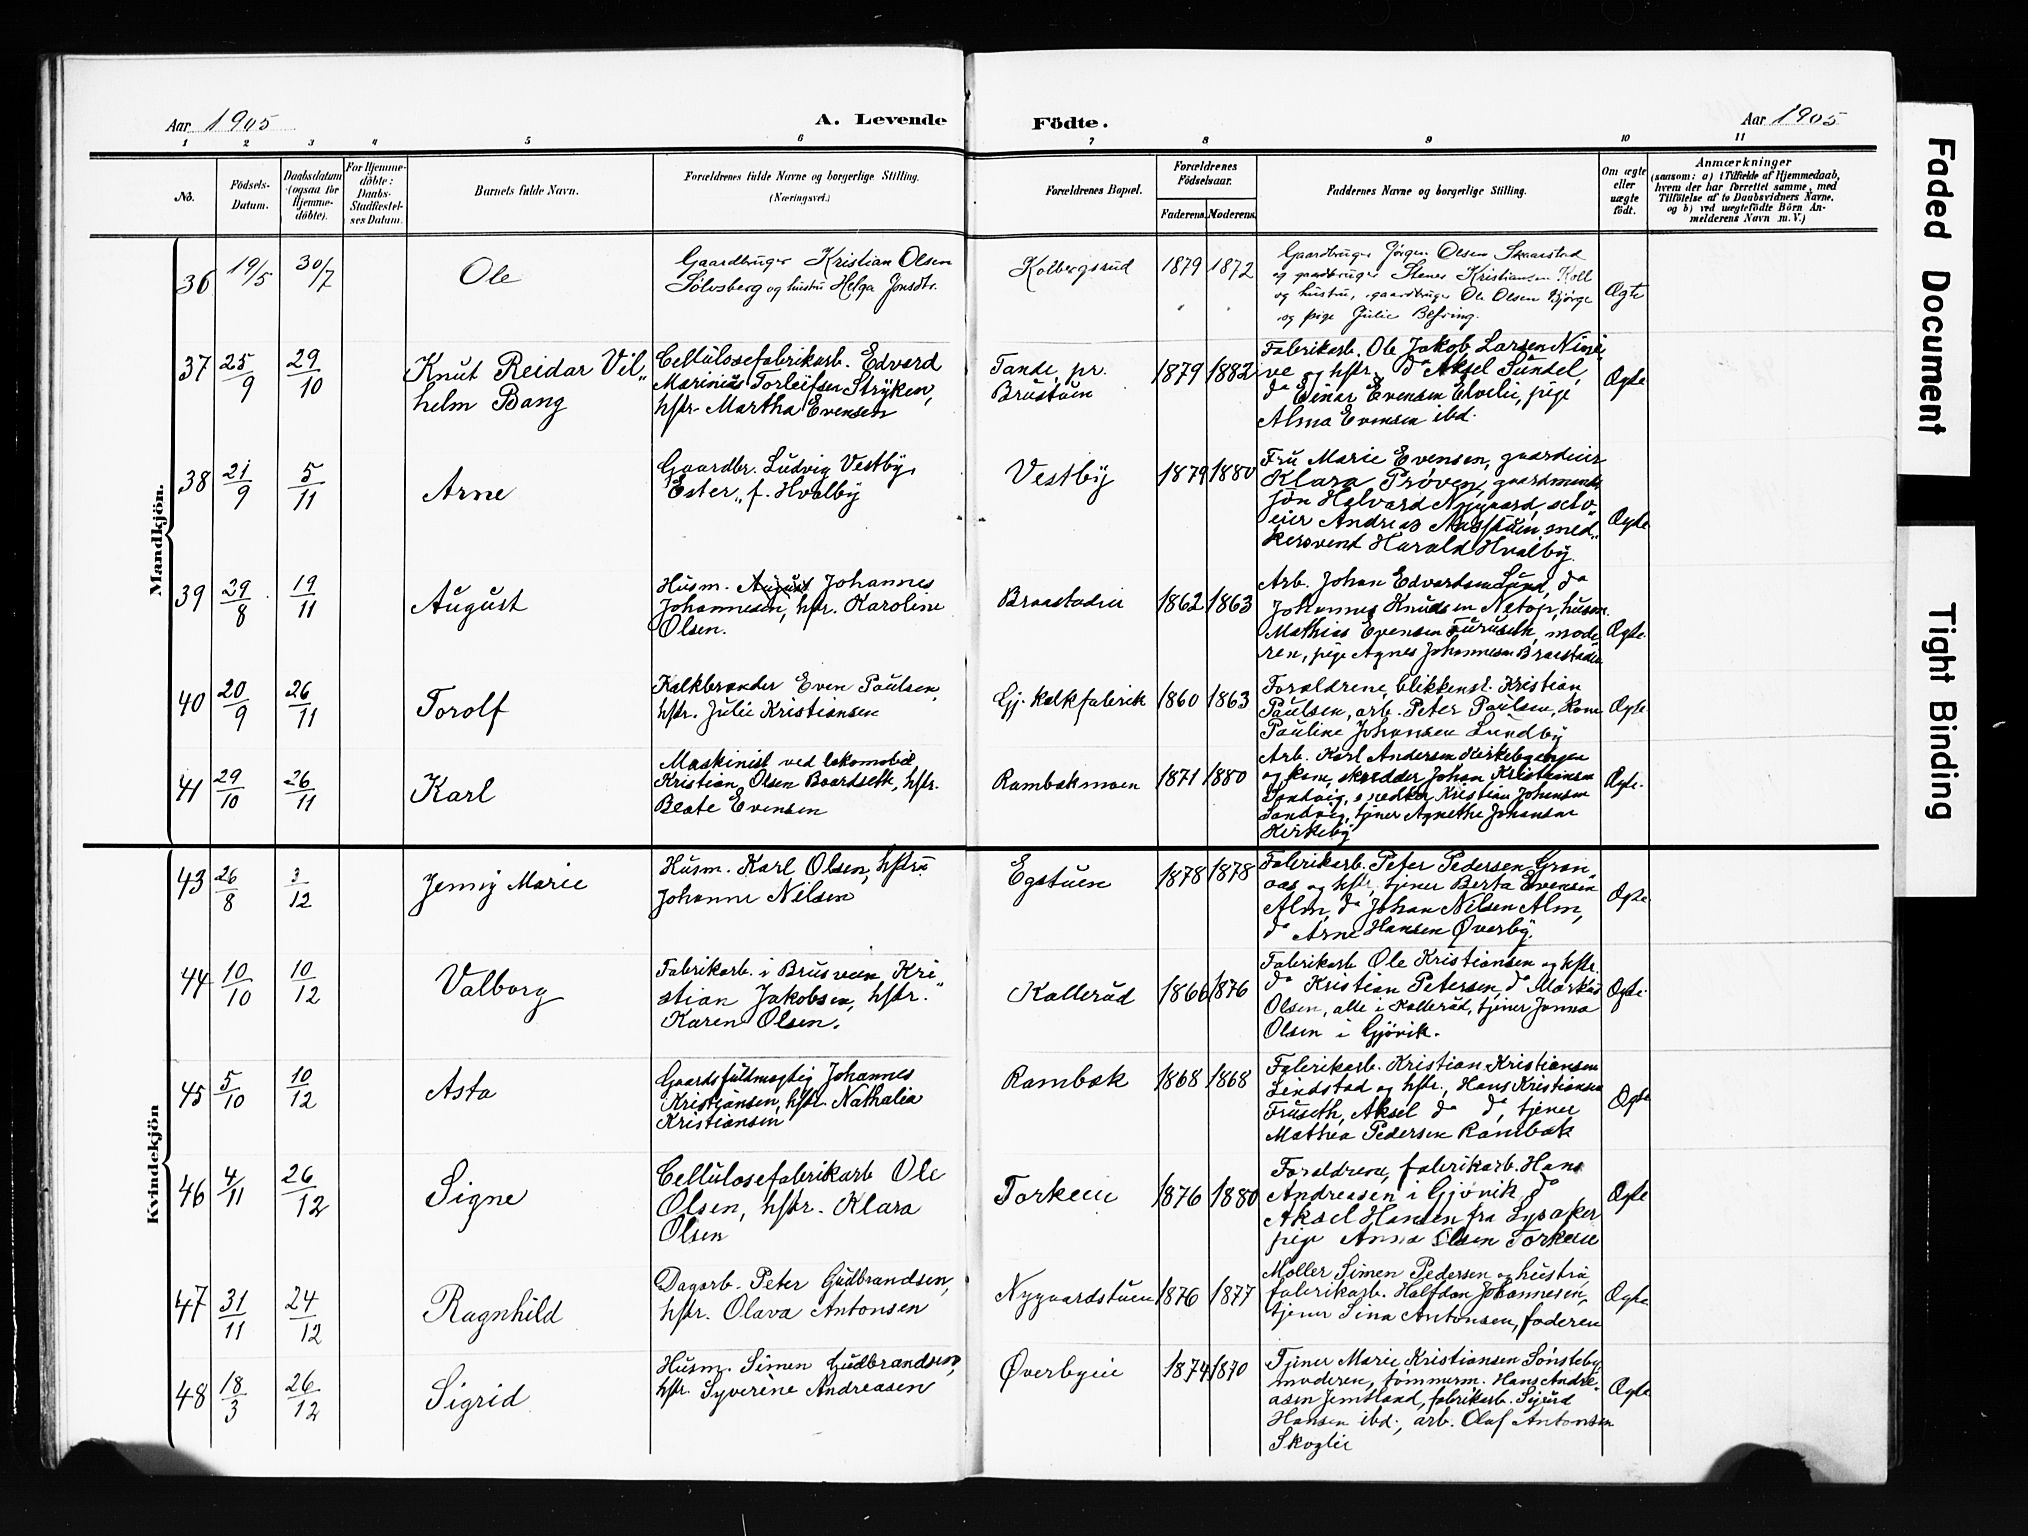 Aar 1905
A. Levende
Födte.
Aar 1905
1 2 3 4 5 6 7 8 9 10 11
No.
Födsels-
Datum.
Daabsdatum
(ogsaa for
Hjemme-
döbte).
For Hjemme-
döbte:
Daabs-
Stadfæstel-
ses Datum.
Barnets fulde Navn.
Forældrenes fulde Navne og borgerlige Stilling.
(Næringsvei.)
Forældrenes Bopæl.
Forældrenes
Födselsaar.
Faderens. Moderens.
Faddernes Navne og borgerlige Stilling.
Om ægte
eller
uægte
födt.
Anmærkninger
(saasom: a) i Tilfælde af Hjemmedaab,
hvem der har forrettet samme, med
Tilföielse af to Daabsvidners Navne.
og b) ved uægtefödte Börn An-
melderens Navn m. V.)
Mandkjön.
36 19/5 30/7 Ole
Gaardbruger Kristian Olsen
Sølvsberg og hustru Helga Jonsdtr.
Kolbergsrud 1879 1872
Gaardbruger Jørgen Olsen Skaarstad
og gaardbruger Stener Kristiansen Koll
og hustru, gaardbruger Ole Olsen Bjørge
og pige Julie Befring.
Ægte
37 25/9 29/10 Knut Reidar Vil„
helm Bang
Cellulosefabrikarb. Edvard
Marinius Torleifsen Stryken,
hstr. Martha Evensen
Tande, pr.
Brustuen
1879 1882
Fabrikarb. Ole Jakob Larsen Nini
ve og hstr. Do Aksel Sundel,
do Einar Evensen Elvelii, pige
Alma Evensen ibd.
Ægte
38 21/9 5/11 Arne
Gaardbr. Ludvig Vestby,
Ester, f. Hvalby
Vestby 1879 1880
Fru Marie Evensen, gaardeier
Klara Prøven, gaardmands
søn Halvard Nygaard, selv„
eier Andreas snedkersvend Harald Hvalby.
Ægte
39 29/8 19/11 August
Husm. August Johannes
Johannesen, hstr. Karoline
Olsen.
Braastadeie 1862 1863
Arb. Johan Edvardsen Lund, do
Johannes Knudsen Netop, husm.
Mathias Evensen Furuseth, mode
ren, pige Agnes Johannesen Braastadeie
Ægte.
40 20/9 26/11 Torolf
Kalkbrænder Even Paulsen,
hstr. Julie Kristiansen
Gj. kalkfabrik 1860 1863
Forældrene, blikkensl. Kristian
Paulsen, arb. Peter Paulsen, Kone
Pauline Johansen Lundby
Ægte
41 29/10 26/11 Karl
Maskinist ved lokomobil,
Kristian Olsen Baardseth, hstr.
Beate Evensen
Rambækmoen 1871 1880
Arb. Karl Andersen Kirkebyengen
og kone, skrædder Johan Kristiansen
Sandvig, snedker Kristian Johansen
Sandvig, tjener Agnethe Johansen
Kirkeby
Ægte.
Kvindekjön
43 26/8 3/12 Jenny Marie
Husm. Karl Olsen, hstru
Johanne Nilsen
Egstuen 1878 1878
Fabrikarb. Peter Pedersen Gran„
aas og hstr., tjener Berta Evensen
Alm, do Johan Nilsen Alm,
do Arne Hansen Øverby.
Ægte
44 10/10 10/12 Valborg
Fabrikarb. i Brusveen Kri„
stian Jakobsen, hstr.
Karen Olsen.
Kallerud 1866 1876
Fabrikarb Ole Kristiansen og hstr.
Do Kristian Petersen, do Markus
Olsen, alle i Kallerud, tjener Janna
Olsen i Gjövik.
Ægte
45 5/10 10/12 Asta
Gaardsfuldmægtig Johannes
Kristiansen, hstr. Nathalia
Kristiansen
Rambæk 1868 1868
Fabrikarb. Kristian Kristiansen
Lindstad og hstr., Hans Kristiansen
Fruseth, Aksel do do, tjener
Mathea Pedersen Rambæk
Ægte
46 4/11 26/12 Signe
Cellulosefabrikarb Ole
Olsen, hstr. Klara
Olsen
Torkeiie 1876 1880
Forældrene, fabrikarb. Hans
Andreasen i Gjövik, do
Aksel Hansen fra Lysaker
pige Anna Olsen Torkeiie
Ægte
47 31/11 24/12 Ragnhild
Dagarb. Peter Gudbrandsen,
hstr. Olava Antonsen
Nygaardstuen 1876 1877
Møller Simen Pedersen og hustru,
fabrikarb. Halfdan Johannesen,
tjener Sina Antonsen, faderen
Ægte
48 18/3 26/12 Sigrid
Husm. Simen Gudbrandsen,
hstr. Syverine Andreasen
Øverbyeie 1874 1870
Tjener Marie Kristiansen Sønsteby
moderen, tømmerm. Hans Andre„
asen Jemtland, fabrikarb. Sigurd
Hansen ibd., arb. Olaf Antonsen
Skoglii
Ægte
Faded Document
Tight Binding